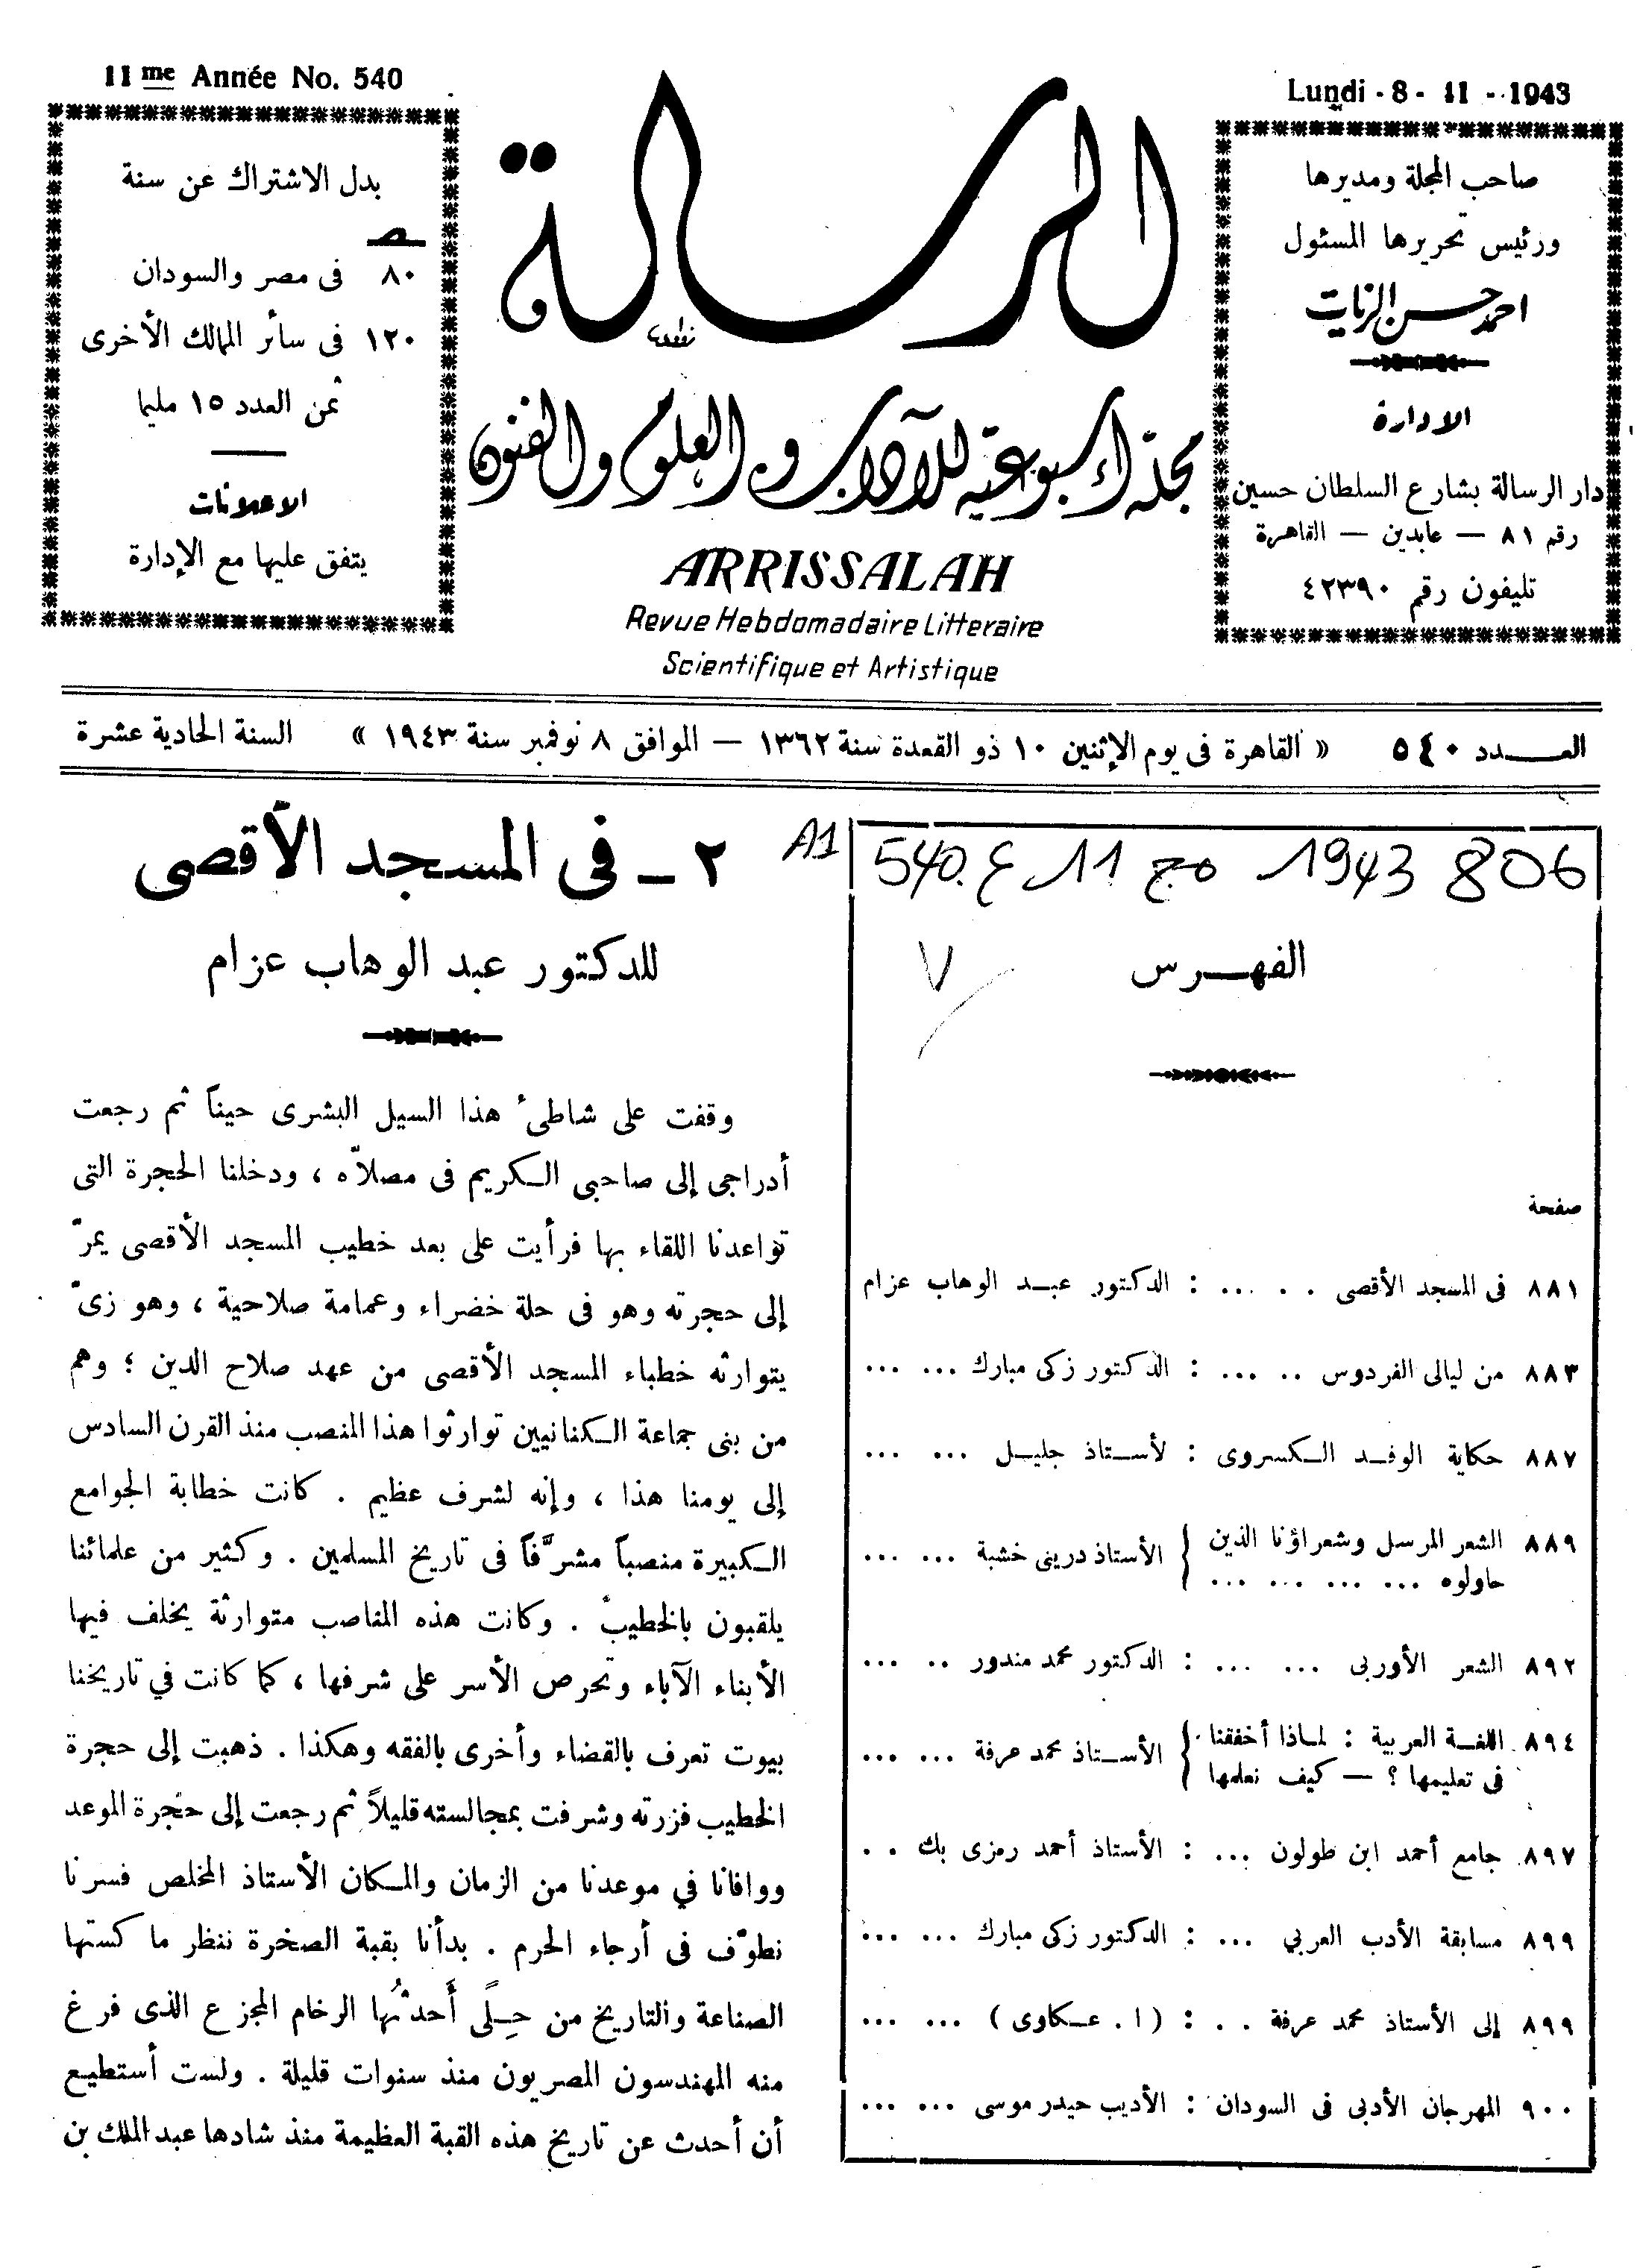 11me Année No. 540
Lundi - 8 - 11 - 1943
صاحب المجلة ومديرها
ورئيس تحريرها المسئول
احمد حسن الزيات
الادارة
دار الرسالة بشارع السلطان حسين
رقم ٨١ — عابدين — القاهرة
تليفون رقم ٤٢٣٩٠
الرسالة
مجلة أسبوعية للآداب والعلوم والفنون
ARRISSALAH
Revue Hebdomadaire Litteraire
Scientifique et Artistique
بدل الاشتراك عن سنة
ص
٨٠ فى مصر والسودان
١٢٠ فى سائر الممالك الأخرى
ثمن العدد ١٥ مليما
الاعلانات
يتفق عليها مع الإدارة
العـــدد ٥٤٠ « القاهرة فى يوم الإثنين ١٠ ذو القعدة سنة ١٣٦٢ — الموافق ٨ نوفمبر سنة ١٩٤٣ » السنة الحادية عشرة
806 1943 مج 11 ع 540
A1
الفهـــرس
٧
صفحة
٨٨١ فى المسجد الأقصى . . ... : الدكتور عبـد الوهاب عزام
٨٨٣ من ليالى الفردوس .. ... : الدكتور زكى مبارك ... ...
٨٨٧ حكاية الوفـد الـكسروى : لأسـتاذ جليـل ... ...
٨٨٩ الشعر المرسل وشعراؤنا الذين
حاولوه ... ... ... ... } الأستاذ درينى خشبة ... ...
٨٩٢ الشعر الأوربى ... ... : الدكتور محمد مندور .. ...
٨٩٤ اللغـة العربية : لمـاذا أخفقنا
فى تعليمها ؟ — كيف نعلمها } الأسـتاذ محمد عرفة ... ...
٨٩٧ جامع أحمد ابن طولون ... : الأستاذ أحمد رمزى بك . .
٨٩٩ مسابقة الأدب العربي ... : الدكتور زكى مبارك ... ...
٨٩٩ إلى الأستاذ محمد عرفة . . : ( ا . عـكاوى ) ... ...
٩٠٠ المهرجان الأدبى فى السودان : الأديب حيدر موسى ... ...
٢ — فى المسجد الأقصى
للدكتور عبد الوهاب عزام
وقفت على شاطئ هذا السيل البشرى حيناً ثم رجعت
أدراجى إلى صاحبى الـكريم فى مصلاّه ، ودخلنا الحجرة التى
تواعدنا اللقاء بها فرأيت على بعد خطيب المسجد الأقصى يمرّ
إلى حجرته وهو فى حلة خضراء وعمامة صلاحية ، وهو زىّ
يتوارثه خطباء المسجد الأقصى من عهد صلاح الدين ؛ وهم
من بنى جماعة الـكنانيين توارثوا هذا المنصب منذ القرن السادس
إلى يومنا هذا ، وإنه لشرف عظيم . كانت خطابة الجوامع
الـكبيرة منصباً مشرَّفاً فى تاريخ المسلمين . وكثير من علمائنا
يلقبون بالخطيب . وكانت هذه المناصب متوارثة يخلف فيها
الأبناء الآباء وتحرص الأسر على شرفها ، كما كانت في تاريخنا
بيوت تعرف بالقضاء وأخرى بالفقه وهكذا . ذهبت إلى حجرة
الخطيب فزرته وشرفت بمجالسته قليلاً ثم رجعت إلى حجرة الموعد
ووافانا في موعدنا من الزمان والمـكان الأستاذ المخلص فسرنا
نطوّف فى أرجاء الحرم . بدأنا بقبة الصخرة ننظر ما كستها
الصناعة والتاريخ من حِلًى أَحدثُها الرخام المجزع الذى فرغ
منه المهندسون المصريون منذ سنوات قليلة . ولست أستطيـع
أن أحدث عن تاريخ هذه القبة العظيمة منذ شادها عبد الملك بن